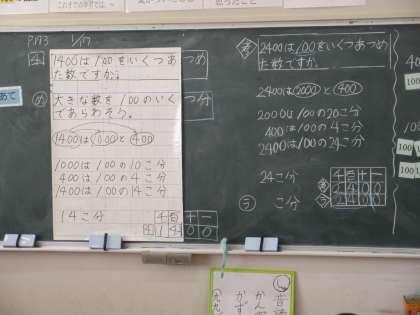 P.173 1/17
1400は100をいくつあつめ
た数ですか。
め
大きな数を100のいく
つ分
であらわそう。
1400は1000と400
1000は100の10こ分
400は100の4こ分
1400は100の14こ分
14こ分
千百十一
1400
めあて
2400は100をいくつあつめ
た数ですか。
2400は2000と400
2000は100の20こ分
400は100の4こ分
2400は100の24こ分
24こ分
こ分
千百十一
2400
100
100
音読
かん
かず